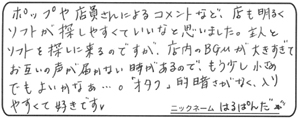 ポップや店員さんによるコメントなど、店も明るく
ソフトが探しやすくていいなと思いました。主人と
ソフトを探しに来るのですが、店内のBGMが大きすぎて
お互いの声が届かない時があるので、もう少し小さめ
でもよいかなぁ…。"オタク"的暗さがなく、入り
やすくて好きです。
ニックネーム はるぱんだ